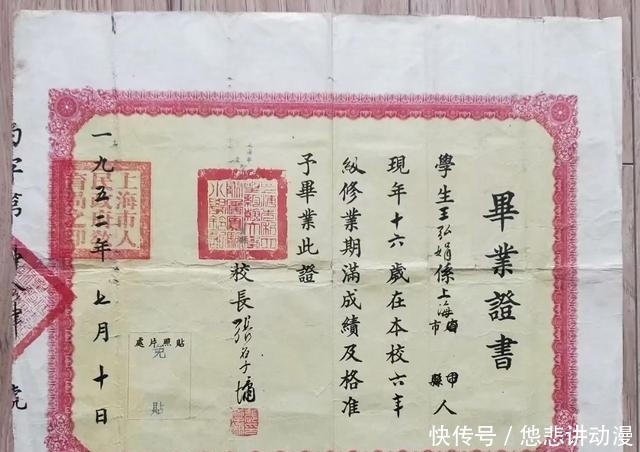 畢業證書
學生王弘娟係上海市縣人
現年十六歲在本校六年
級修業期滿成績及格准
予畢業此證
校長張
貼照片處
免貼
一九五二年七月十日
上海市人民政府教育局之印
字第號
快传号／悠悲讲动漫